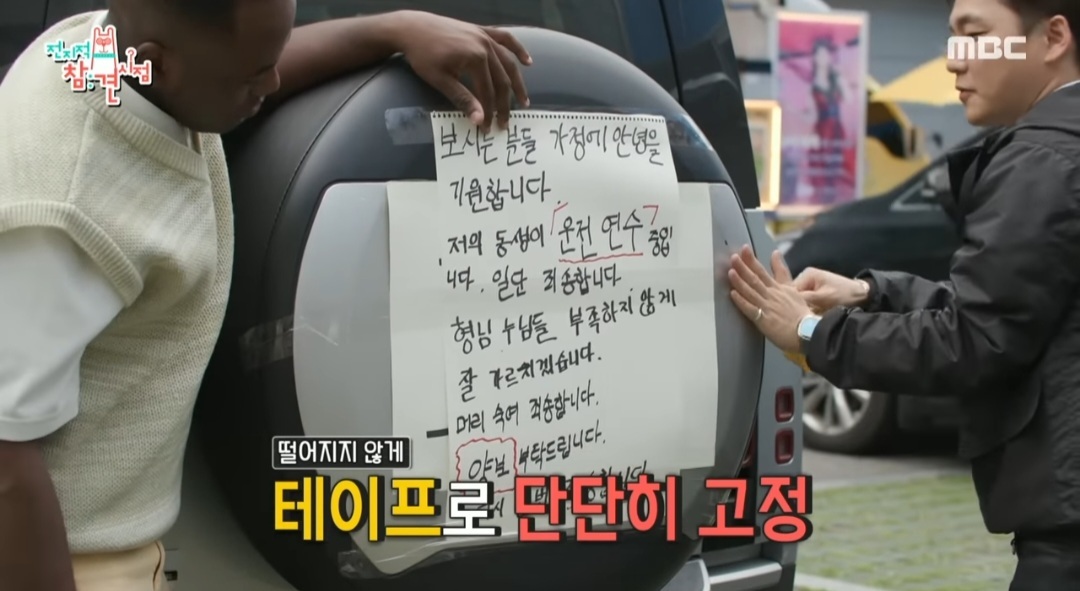 전지적
참견시점
MBC
보시는 분들 가정에 안녕을
기원합니다.
저의 동생이 「운전 연수」 중입
니다. 일단 죄송합니다.
형님 누님들 부족하지 않게
잘 가르치겠습니다.
머리 숙여 죄송합니다.
양보 부탁드립니다.
떨어지지 않게
테이프로 단단히 고정